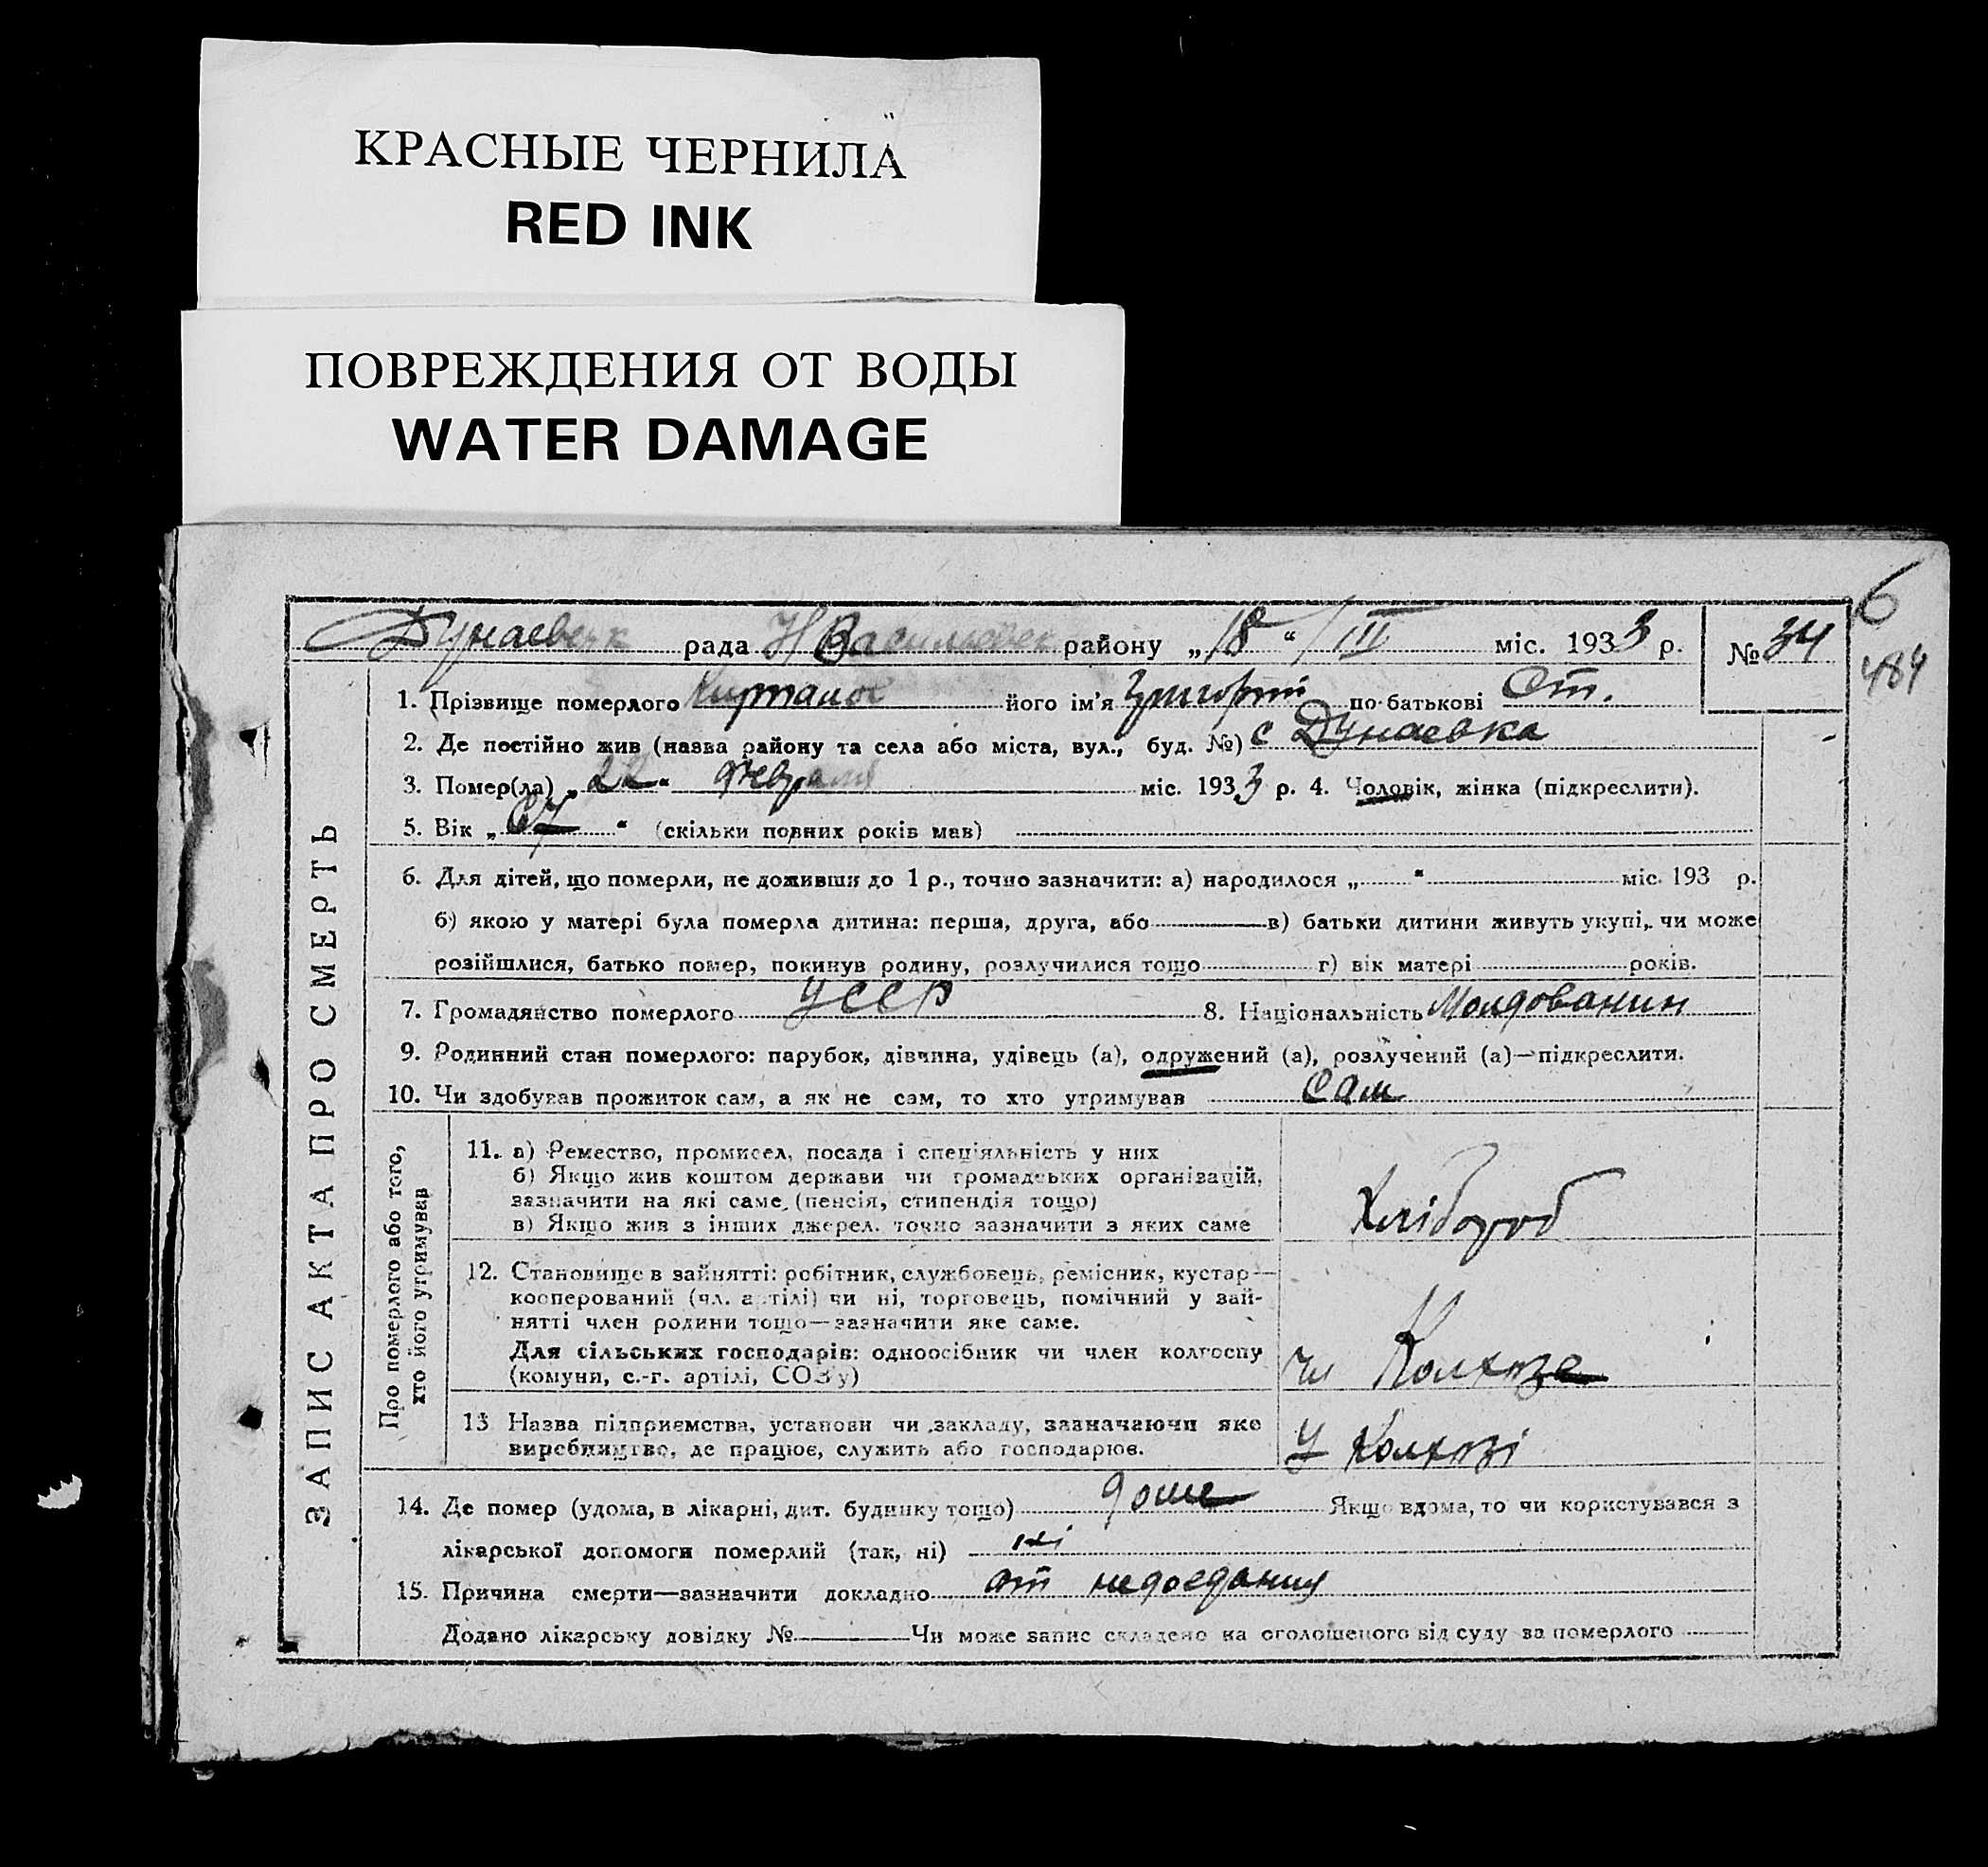 КРАСНЫЕ ЧЕРНИЛА
RED INK
ПОВРЕЖДЕНИЯ ОТ ВОДЫ
WATER DAMAGE
6
484
рада района „18“ III міс. 1933 р. № 34
ЗАПИС АКТА ПРО СМЕРТЬ
1. Прізвище померлого його ім'я Григорій по-батькові Ст.
2. Де постійно жив (назва району та села або міста, вул., буд. №) с Дунаевка
3. Помер(ла) „22“ февраля міс. 1933 р. 4. Чоловік, жінка (підкреслити).
5. Вік „ “ (скільки повних років мав)
6. Для дітей, що померли, не доживши до 1 р., точно зазначити: а) народилося „ “ міс. 193 р.
б) якою у матері була померла дитина: перша, друга, або в) батьки дитини живуть укупі, чи може
розійшлися, батько помер, покинув родину, розлучилися тощо г) вік матері років.
7. Громадянство померлого УССР 8. Національність Молдованин
9. Родинний стан померлого: парубок, дівчина, удівець (а), одружений (а), розлучений (а)—підкреслити.
10. Чи здобував прожиток сам, а як не сам, то хто утримував сам
Про померлого або того,
хто його утримував
11. а) Ремество, промисел, посада і спеціяльність у них
б) Якщо жив коштом держави чи громадських організацій,
зазначити на які саме (пенсія, стипендія тощо)
в) Якщо жив з інших джерел. точно зазначити з яких саме
Хлібороб
12. Становище в зайнятті: робітник, службовець, ремісник, кустар—
кооперований (чл. артілі) чи ні, торговець, помічний у зай-
нятті член родини тощо—зазначити яке саме.
Для сільських господарів: одноосібник чи член колгоспу
(комуни, с.-г. артілі, СОЗ'у)
чл Колхоза
13 Назва підприємства, установи чи закладу, зазначаючи яке
виробництво, де працює, служить або господарює.
у Колхозі
14. Де помер (удома, в лікарні, дит. будинку тощо) доме Якщо вдома, то чи користувався з
лікарської допомоги померлий (так, ні) ні
15. Причина смерти—зазначити докладно от недоедания
Додано лікарську довідку № Чи може запис складено на оголошеного від суду за померлого